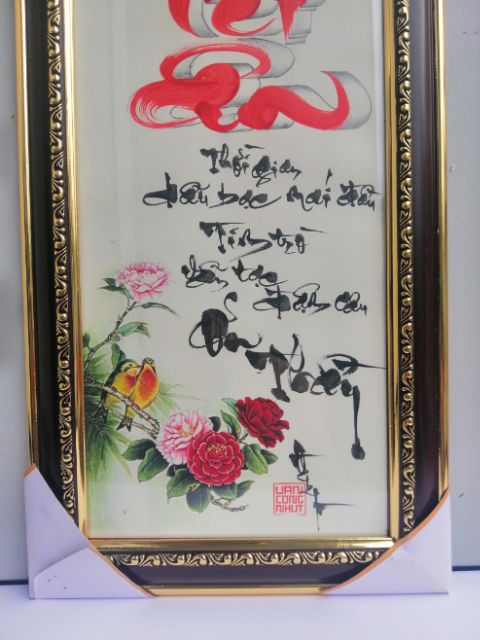 Thời gian
dẫu bạc mái đầu
Tình trò
vẫn tạc đậm câu
Ơn Thầy
VAN
CONG
NHUT